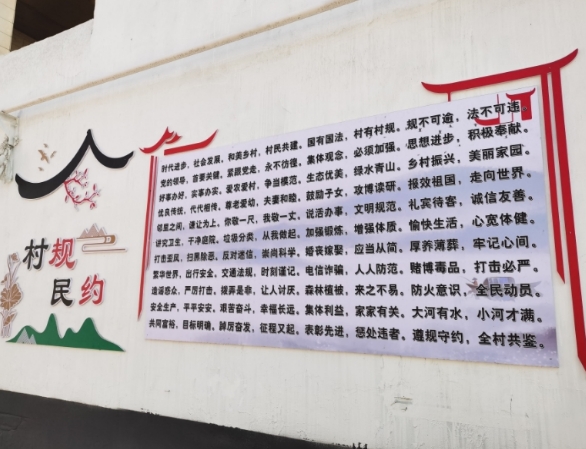 村规
民约
时代进步，社会发展，和美乡村，村民共建。国有国法，村有村规。规不可逾，法不可违。
党的领导，首要关键，紧跟党走，永不彷徨。集体观念，必须加强。思想进步，积极奉献。
好事办好，实事办实，爱农爱村，争当模范。生态优美，绿水青山，乡村振兴，美丽家园。
优良传统，代代相传，尊老爱幼，夫妻和睦。鼓励子女，攻博读研。报效祖国，走向世界。
邻里之间，谦让为上。你敬一尺，我敬一丈，说活办事，文明规范。礼宾待客，诚信友善。
讲究卫生，干净庭院。垃圾分类，从我做起。加强锻炼，增强体质。愉快生活，心宽体健。
打击歪风，扫黑除恶。反对迷信，崇尚科学。婚丧嫁娶，应当从简。厚养薄葬，牢记心间。
繁华世界，出行安全。交通法规，时刻谨记。电信诈骗，人人防范。赌博毒品，打击必严。
造谣惑众，严厉打击。搬弄是非，让人讨厌。森林植被，来之不易。防火意识，全民动员。
安全生产，平平安安。艰苦奋斗，幸福长远。集体利益，家家有关。大河有水，小河才满。
共同富裕，目标明确。踔厉奋发，征程又起。表彰先进，惩处违者。遵规守约，全村共鉴。